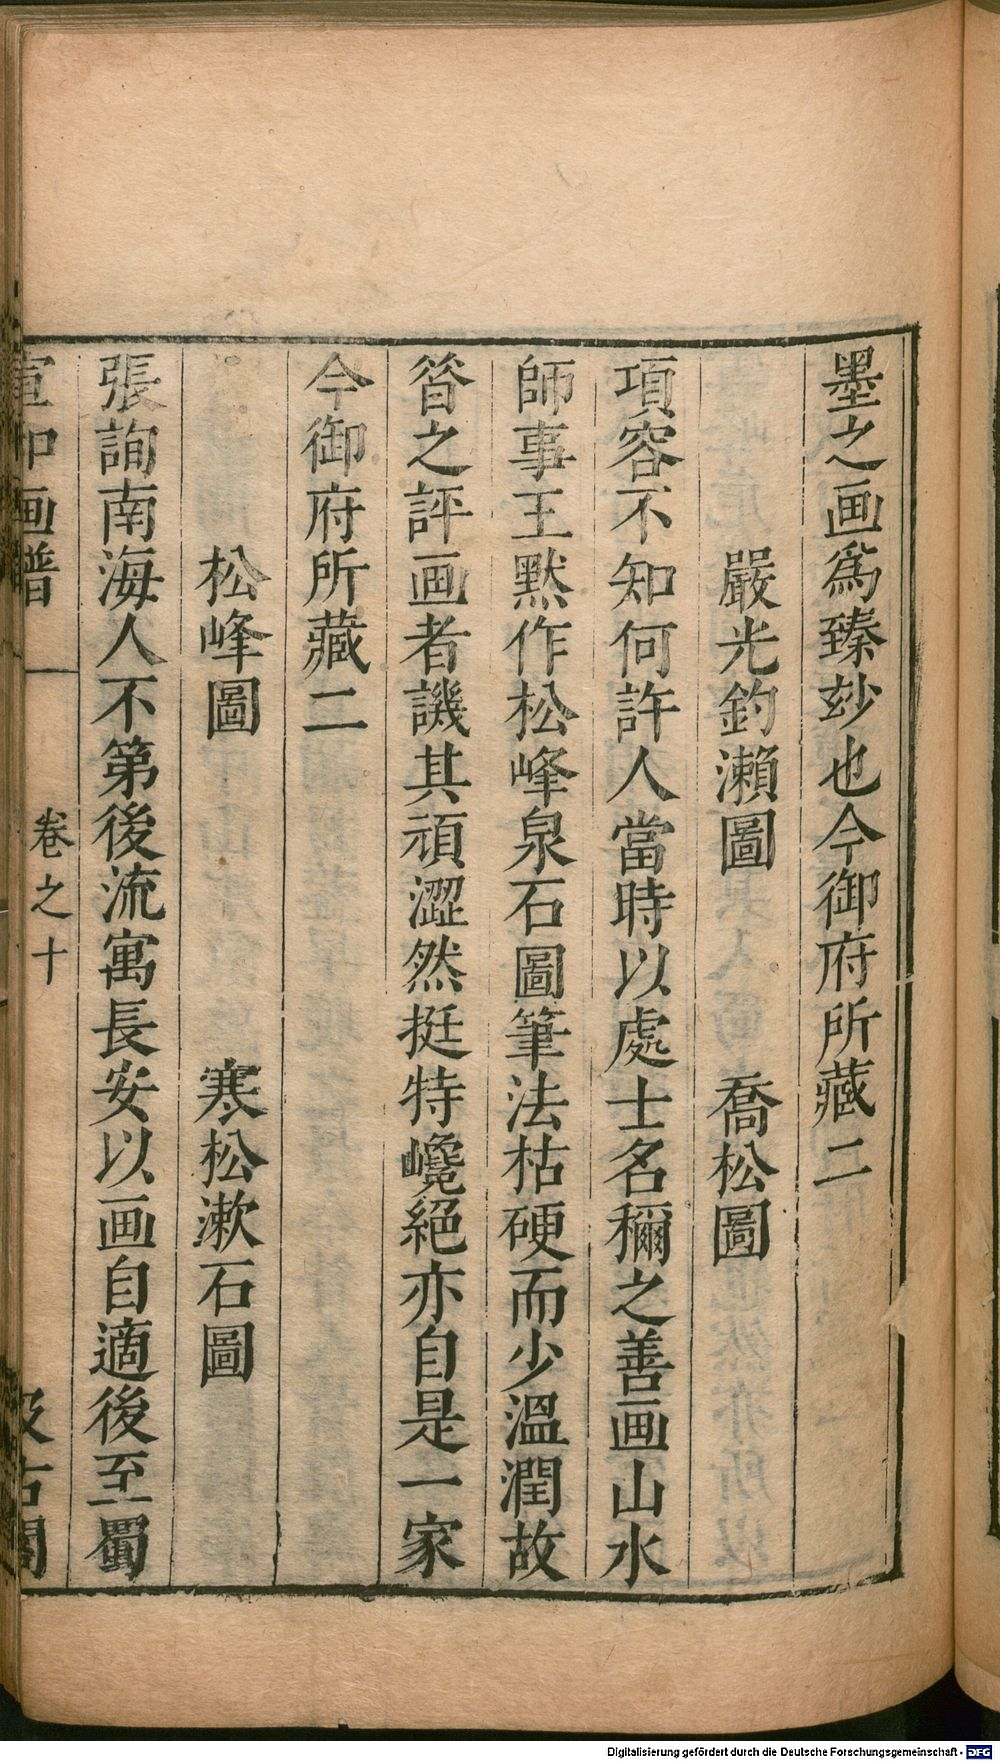 墨之画爲臻玅也今御府所藏二
嚴光釣瀨圖　喬松圖
項容不知何許人當時以處士名穪之善画山水
師事王默作松峰泉石圖筆法枯硬而少溫潤故
昝之評画者譏其頑澀然挺特巉絕亦自是一家
今御府所藏二
松峰圖　寒松漱石圖
張詢南海人不第後流寓長安以画自適後至蜀
宣和画譜　卷之十　汲古閣
Digitalisierung gefördert durch die Deutsche Forschungsgemeinschaft - DFG